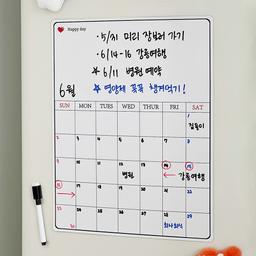 Happy day
· 5/31 미리 장보러 가기
· 6/14-16 강릉여행
★ 6/11 병원 예약
★ 영양제 꼭꼭 챙겨먹기!
6월
SUN MON TUES WED THUR FRI SAT
1
집들이
2 3 4 5 6 7 8
9 10 11 12 13 14 15
병원 강릉여행
16 17 18 19 20 21 22
23 24 25 26 27 28 29
30 회사회식